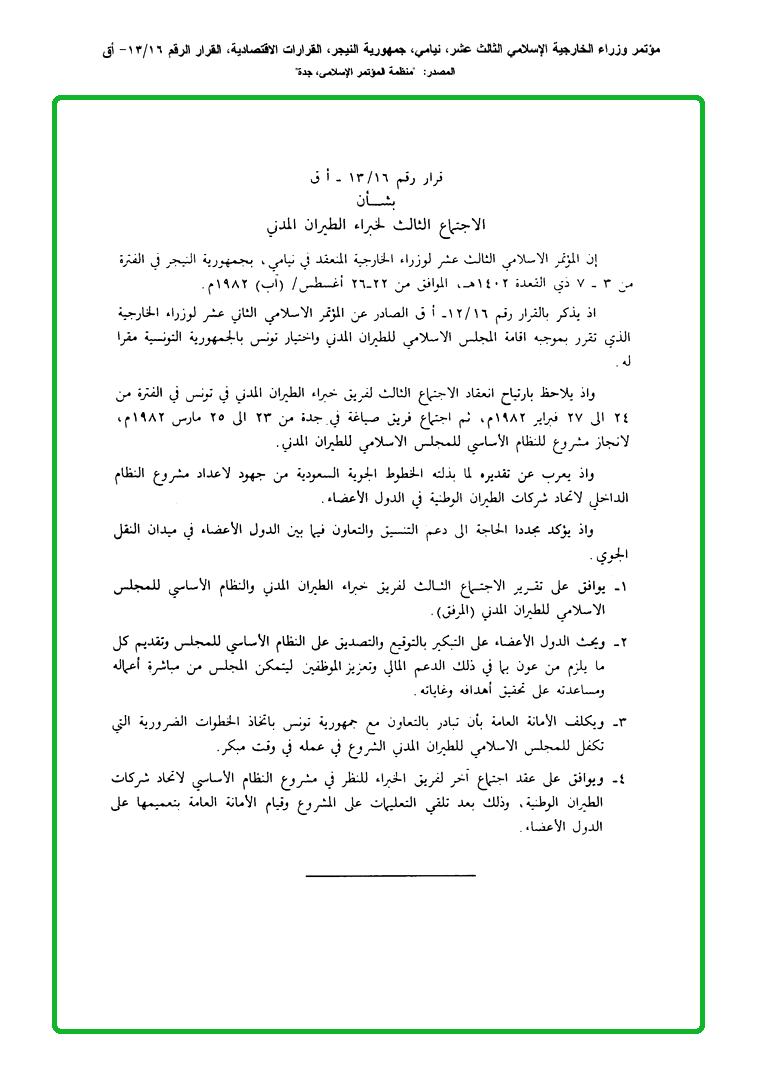 مؤتمر وزراء الخارجية الإسلامي الثالث عشر، نيامي، جمهورية النيجر، القرارات الاقتصادية، القرار الرقم ١٣/١٦- أق
المصدر: "منظمة المؤتمر الإسلامي، جدة"
قرار رقم ١٣/١٦ ـ أ ق
بشــأن
الاجتماع الثالث لخبراء الطيران المدني
إن المؤتمر الاسلامي الثالث عشر لوزراء الخارجية المنعقد في نيامي، بجمهورية النيجر في الفترة
من ٣ ـ ٧ ذي القعدة ١٤٠٢هـ، الموافق من ٢٢ـ٢٦ أغسطس/ (آب) ١٩٨٢م.
اذ يذكر بالقرار رقم ١٢/١٦ـ أ ق الصادر عن المؤتمر الاسلامي الثاني عشر لوزراء الخارجية
الذي تقرر بموجبه اقامة المجلس الاسلامي للطيران المدني واختيار تونس بالجمهورية التونسية مقرا
له.
واذ يلاحظ بارتياح انعقاد الاجتماع الثالث لفريق خبراء الطيران المدني في تونس في الفترة من
٢٤ الى ٢٧ فبراير ١٩٨٢م، ثم اجتماع فريق صياغة في جدة من ٢٣ الى ٢٥ مارس ١٩٨٢م،
لانجاز مشروع للنظام الأساسي للمجلس الاسلامي للطيران المدني.
واذ يعرب عن تقديره لما بذلته الخطوط الجوية السعودية من جهود لاعداد مشروع النظام
الداخلي لاتحاد شركات الطيران الوطنية في الدول الأعضاء.
واذ يؤكد مجددا الحاجة الى دعم التنسيق والتعاون فيما بين الدول الأعضاء في ميدان النقل
الجوي.
١ـ يوافق على تقرير الاجتماع الثالث لفريق خبراء الطيران المدني والنظام الأساسي للمجلس
الاسلامي للطيران المدني (المرفق).
٢ـ ويحث الدول الأعضاء على التبكير بالتوقيع والتصديق على النظام الأساسي للمجلس وتقديم كل
ما يلزم من عون بما في ذلك الدعم المالي وتعزيز الموظفين ليتمكن المجلس من مباشرة أعماله
ومساعدته على تحقيق أهدافه وغاياته.
٣ـ ويكلف الأمانة العامة بأن تبادر بالتعاون مع جمهورية تونس باتخاذ الخطوات الضرورية التي
تكفل للمجلس الاسلامي للطيران المدني الشروع في عمله في وقت مبكر.
٤ـ ويوافق على عقد اجتماع آخر لفريق الخبراء للنظر في مشروع النظام الأساسي لاتحاد شركات
الطيران الوطنية، وذلك بعد تلقي التعليمات على المشروع وقيام الأمانة العامة بتعميمها على
الدول الأعضاء.